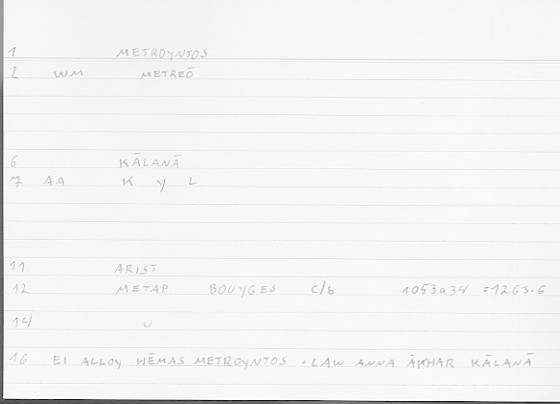 1 METROYNTOS
2 WM METREŌ
6 KĀLANĀ
7 AA K Y L
11 ARIST
12 METAP BOUYGES C/b 1053a34 =1263.6
14 U
16 EI ALLOY HĒMAS METROYNTOS . LAW ANNA ĀKHAR KĀLANĀ